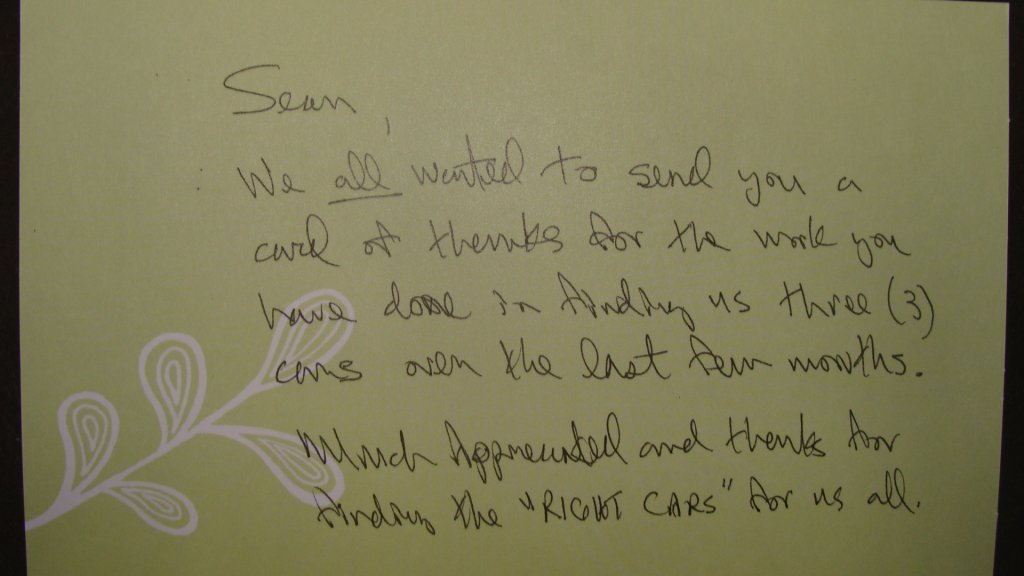 Sean,
We all wanted to send you a
card of thanks for the work you
have done in finding us three (3)
cars over the last few months.
Much Appreciated and thanks for
finding the "RIGHT CARS" for us all.